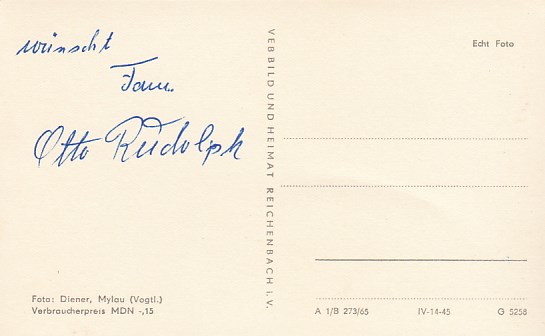 wünscht
Fam.
Otto Rudolph
Foto: Diener, Mylau (Vogtl.)
Verbraucherpreis MDN -,15
VEB BILD UND HEIMAT REICHENBACH i.V.
Echt Foto
A 1/B 273/65 IV-14-45 G 5258